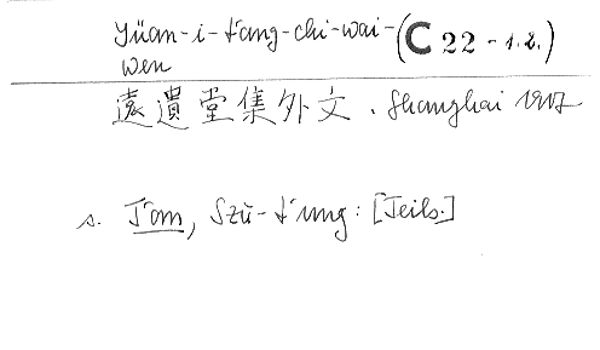 Yüan-i-t'ang-chi-wai-(C 22 - 1.2.)
wen
遠遺堂集外文. Shanghai 1917
s. T'am, Szù-t'ung: [Teils.]